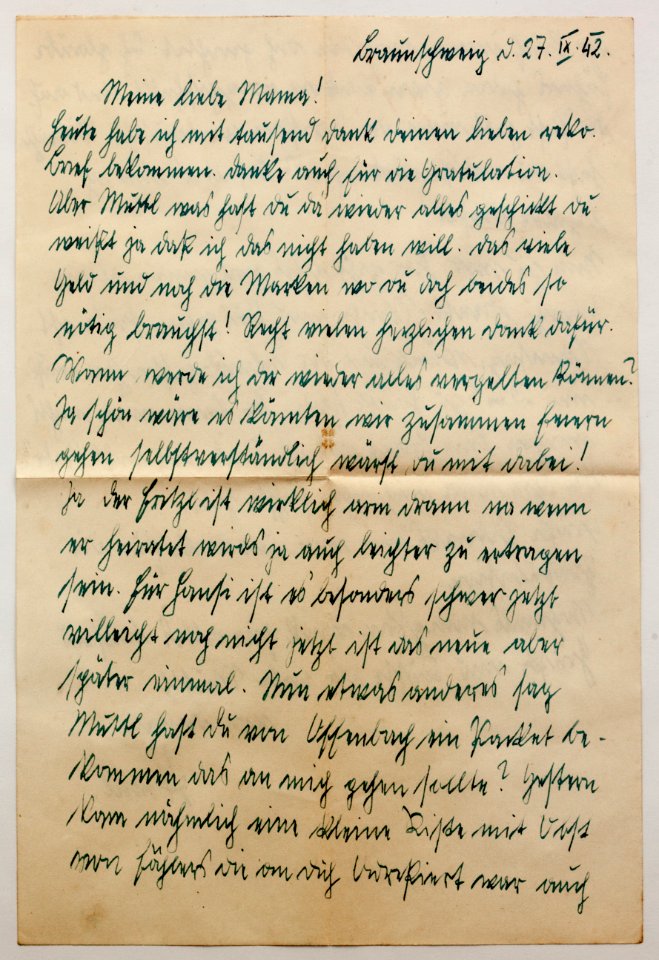 Braunschweig d. 27. IX. 42.
Meine liebe Mama!
Heute habe ich mit tausend dank deinen lieben reko.
Brief bekommen. danke auch für die Gratulation.
Aber Muttl was hast du da wieder alles geschickt du
weißt ja daß ich das nicht haben will. das viele
Geld und noch die Marken wo du doch beides so
nötig brauchst! Recht vielen herzlichen dank dafür.
Wann werde ich dir wieder alles vergelten können?
Ja schön wäre es könnten wir zusammen feiern
gehen selbstverständlich wärst du mit dabei!
Ja der Fritzl ist wirklich arm drann na wenn
er heiratet wirds ja auch leichter zu ertragen
sein. Für Hansi ist es besonders schwer jetzt
villeicht noch nicht jetzt ist das neue aber
später einmal. Nun etwas anderes sag
Muttl hast du von Offenbach ein Packet be-
kommen das an mich gehen sollte? Gestern
kam nähmlich eine kleine Kiste mit Obst
von die an dich adreßiert war auch